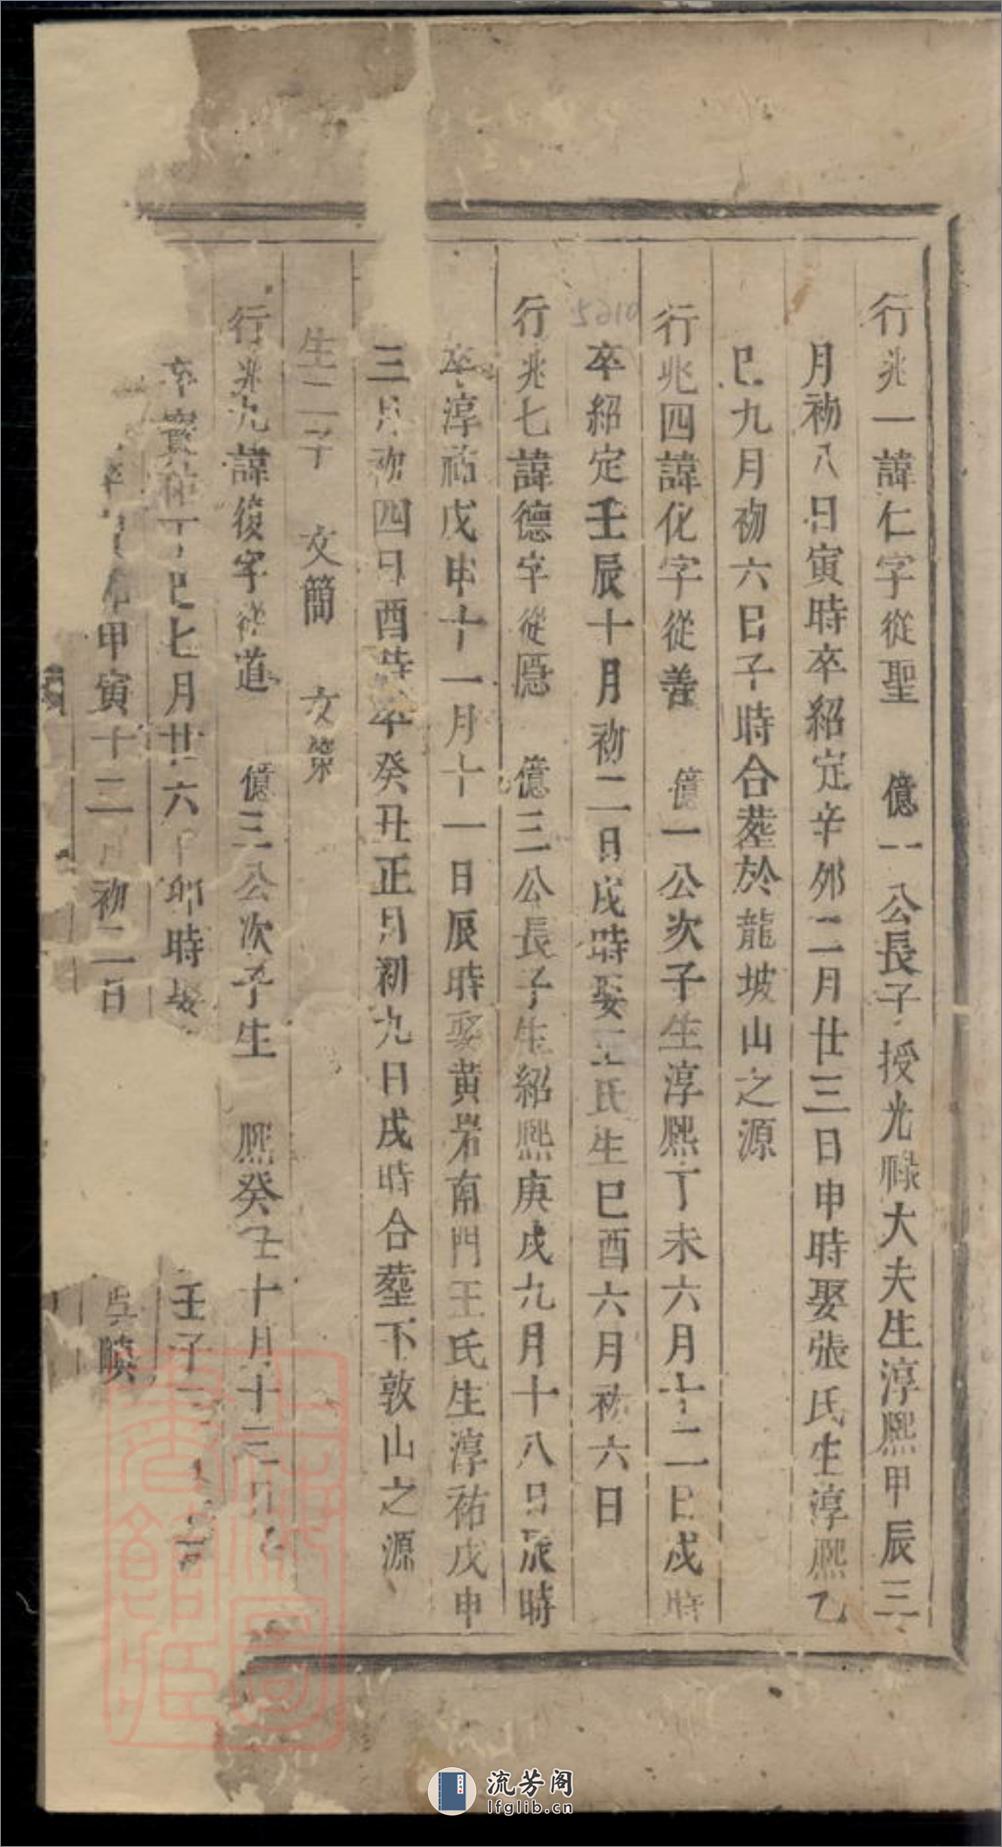 行兆一諱仁字從聖 億一公長子授光祿大夫生淳熙甲辰三
月初八日寅時卒紹定辛卯二月廿三日申時娶張氏生淳熙乙
巳九月初六日子時合塟於龍坡山之源
行兆四諱化字從善 億一公次子生淳熙丁未六月十二日戌時
卒紹定壬辰十月初二日戌時娶王氏生巳酉六月初六日
5210
行兆七諱德字從隱 億三公長子生紹熙庚戌九月十八日辰時
卒淳祐戊申十一月十一日辰時娶黃岩南門王氏生淳祐戊申
三月初四日酉時卒癸丑正月初九日戌時合塟下敦山之源
生二子 文簡 文策
行兆九諱復字從道 億三公次子生 熙癸丑十月十三日
卒寳祐丁巳七月廿六日卯時娶 壬子二
甲寅十二月初二日 吳暎
上海圖書館藏
流芳阁
lfglib.cn